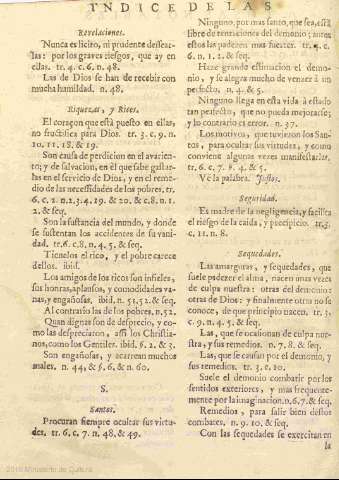 INDICE DE LAS
Revelaciones.
Nunca es licito, ni prudente dessear-
las: por los graves riesgos, que ay en
ellas. tr. 4. c. 6. n. 48.
Las de Dios se han de recebir con
mucha humildad. n. 48.
Riquezas, y Ricos.
El coraçon que està puesto en ellas,
no fructifica para Dios. tr. 3. c. 9. n.
10. 11. 18. & 19.
Son causa de perdicion en el avarien-
to; y de salvacion, en el que sabe gastar-
las en el servicio de Dios, y en el reme-
dio de las necessidades de los pobres. tr.
6. c. 2. n. 2. 3. 4. 19. & 20. & c. 8. n. 1.
2. & seq.
Son la sustancia del mundo, y donde
se sustentan los accidentes de su vani-
dad. tr. 6. c. 8. n. 4. 5. & seq.
Tienelos el rico, y el pobre carece
dellos. ibid.
Los amigos de los ricos son infieles,
sus honras, aplausos, y comodidades va-
nas, y engañosas. ibid. n. 51. 52. & seq.
Al contrario las de los pobres. n. 52.
Quan dignas son de desprecio, y co-
mo las despreciaron, assi los Christia-
nos, como los Gentiles. ibid. 6. 2. & 3.
Son engañosas, y acarrean muchos
males. n. 44. & 56. & n. 60.
S.
Santos.
Procuran siempre ocultar sus virtu-
des. tr. 6. c. 7. n. 48. & 49.
Ninguno, por mas santo, que sea, està
libre de tentaciones del demonio; antes
estos las padecen mas fuertes. tr. 4. c.
6. n. 1. 2. & seq.
Haze grande estimacion el demo-
nio, y se alegra mucho de vencer à un
perfecto. n. 4. & 5.
Ninguno llega en esta vida à estado
tan perfecto, que no pueda mejorarse;
y lo contrario es error. n. 37.
Los motivos, que tuvieron los San-
tos, para ocultar sus virtudes, y como
conviene algunas vezes manifestarlas.
tr. 6. c. 7. n. 4. & 5.
Vè la palabra. Justos.
Seguridad.
Es madre de la negligencia, y facilita
el riesgo de la caida, y precipicio. tr. 3.
c. 11. n. 8.
Sequedades.
Las amarguras, y sequedades, que
suele padecer el alma, nacen unas vezes
de culpa nuestra: otras del demonio:
otras de Dios: y finalmente otras no se
conoce, de que principio nacen. tr. 3.
c. 9. n. 4. 5. & seq.
Las, que se ocasionan de culpa nue-
stra, y sus remedios. n. 7. 8. & seq.
Las, que se causan por el demonio, y
sus remedios. tr. 3. c. 10.
Suele el demonio combatir por los
sentidos exteriores, y mas frequente-
mente por la imaginacion. n. 6. 7. & seq.
Remedios, para salir bien destos
combates. n. 9. 10. & seq.
Con las sequedades se exercitan en
la